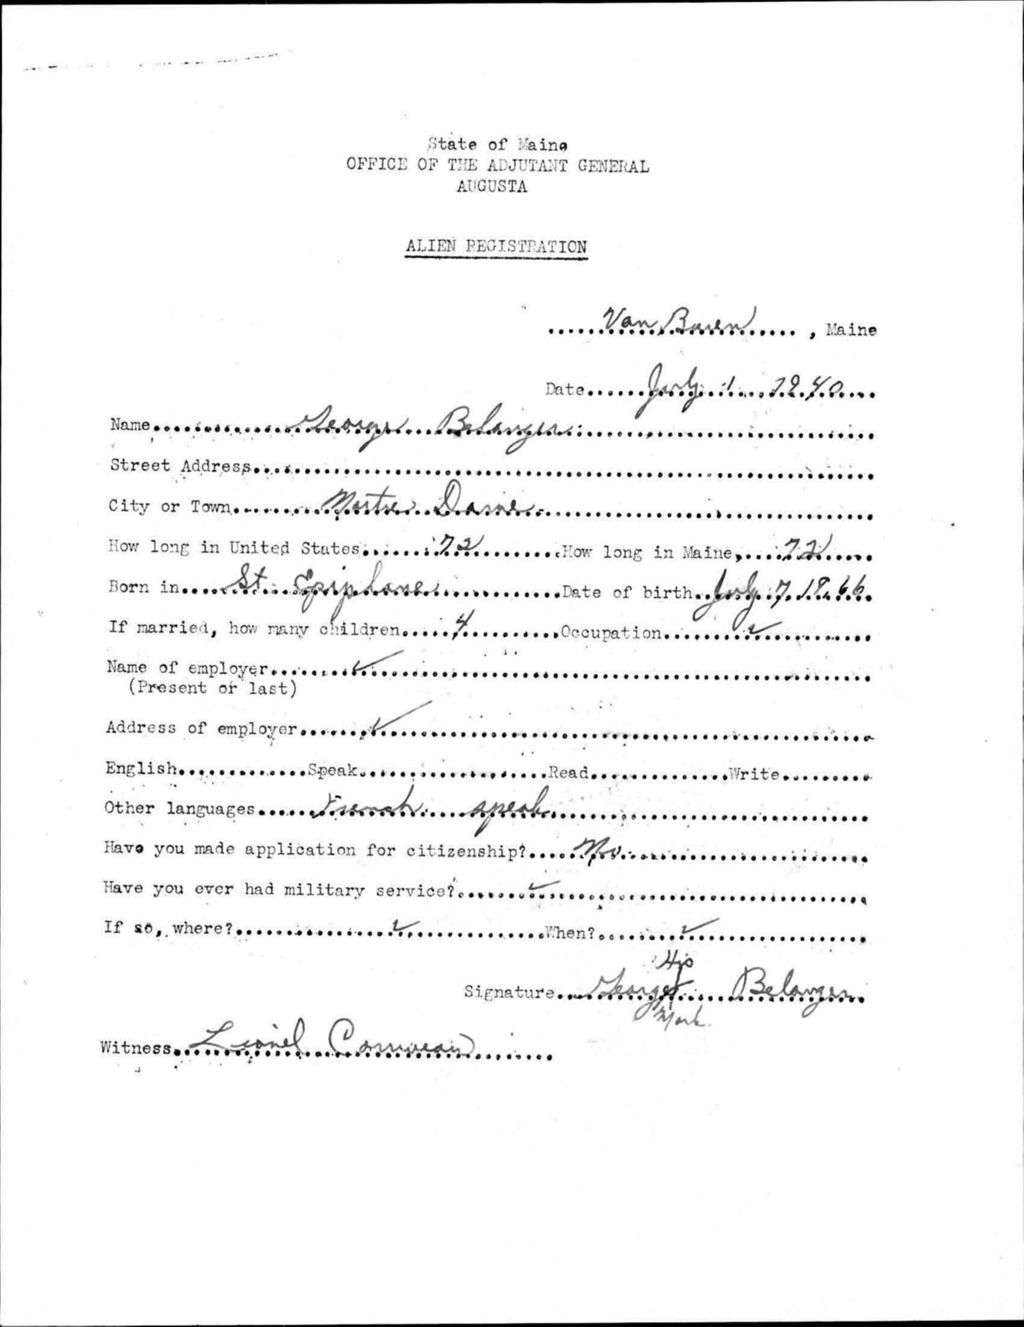 State of Maine
OFFICE OF THE ADJUTANT GENERAL
AUGUSTA
ALIEN REGISTRATION
Van Buren, Maine
Date July 1 1940
Name George Belanger
Street Address
City or Town Nortre Dame
How long in United States 72 How long in Maine, 72
Born in St. Epiphane Date of birth July 7, 1866
If married, how many children 4 Occupation ✓
Name of employer ✓
(Present or last)
Address of employer ✓
English Speak Read Write
Other languages French speak
Have you made application for citizenship? No
Have you ever had military service? ✓
If so, where? ✓ When? ✓
His
Signature George X Belanger
Mark
Witness Lionel